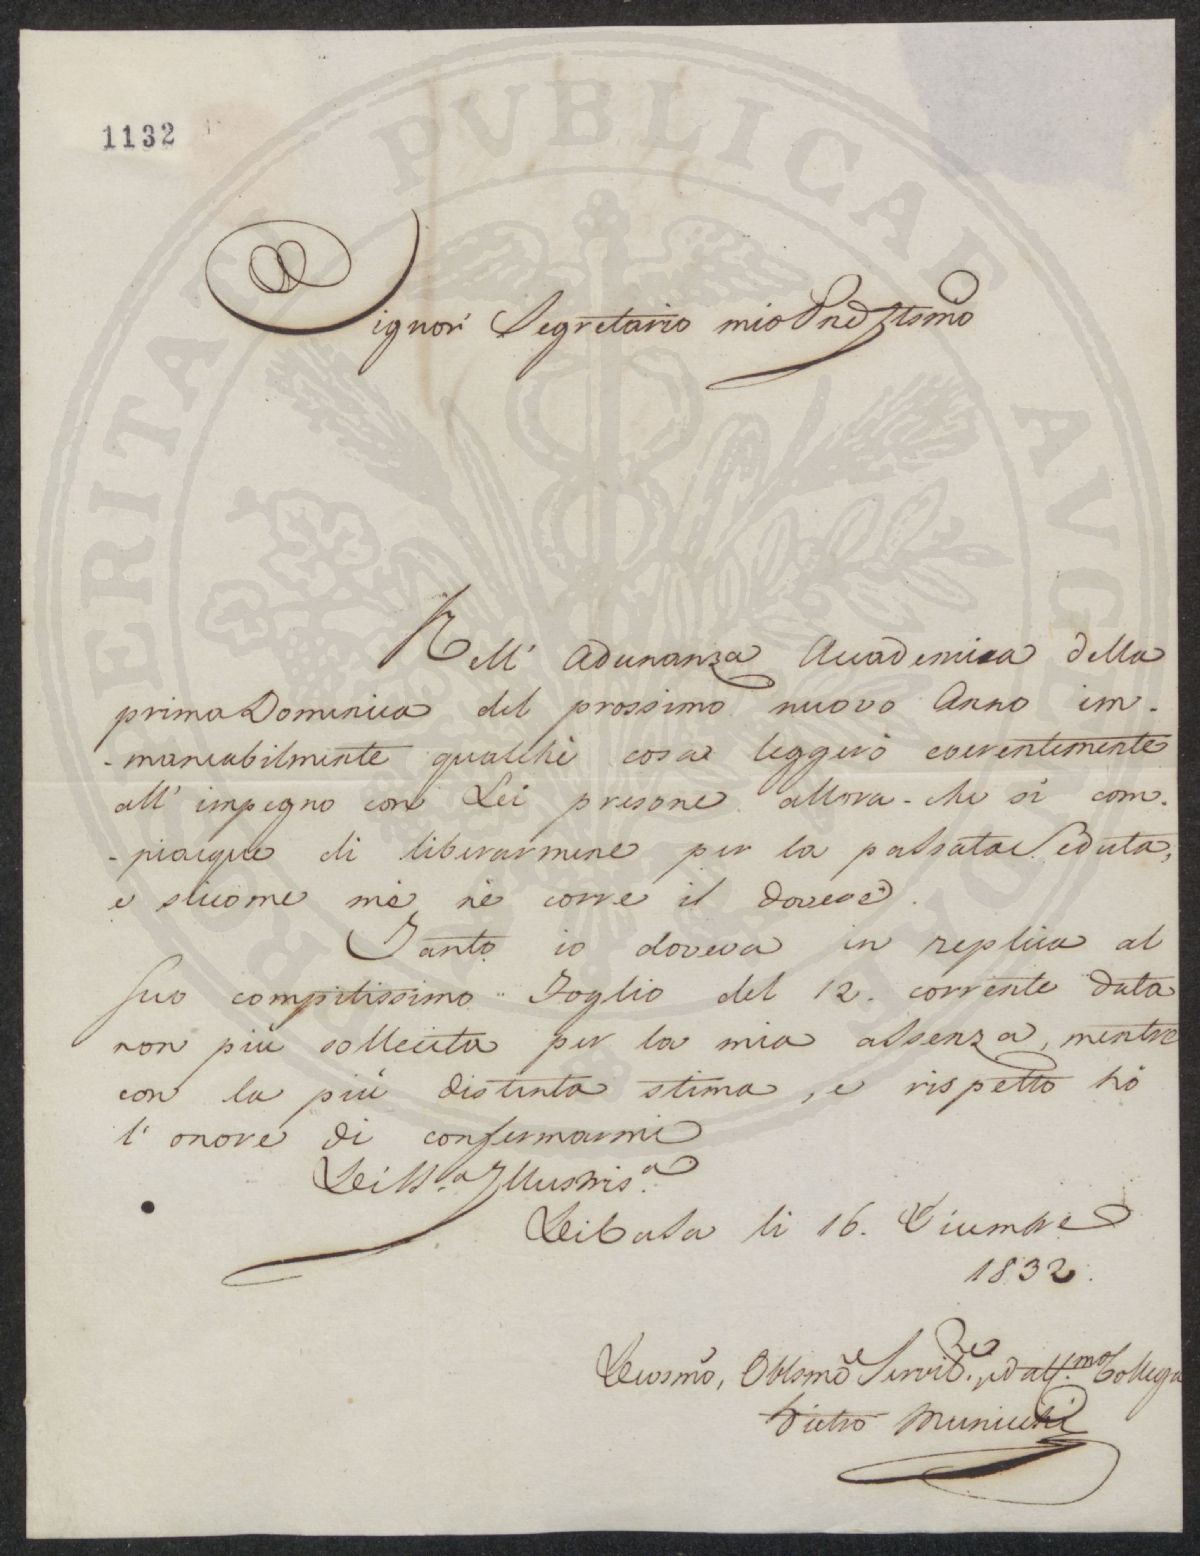 1132
PROSPERITATI PVBLICAE AVGENDAE
Signor Segretario mio Pne Stsmo
Nell' Adunanza Accademica della
prima Domenica del prossimo nuovo Anno im-
-mancabilmente qualche cosa leggerò coerentemente
all' impegno con Lei presone allora-che si com-
-piacque di liberarmene per la passata Seduta,
e siccome me nè corre il dovere.
Tanto io doveva in replica al
Suo compitissimo Foglio del 12. corrente data
non più sollecita per la mia assenza, mentre
con la più distinta stima, e rispetto hò
l' onore di confermarmi
Illustris.a
li 16. Dicembre
1832.
Devosmo, Obblsmo Servit.re, ed aff.mo Collega
Pietro Municchi